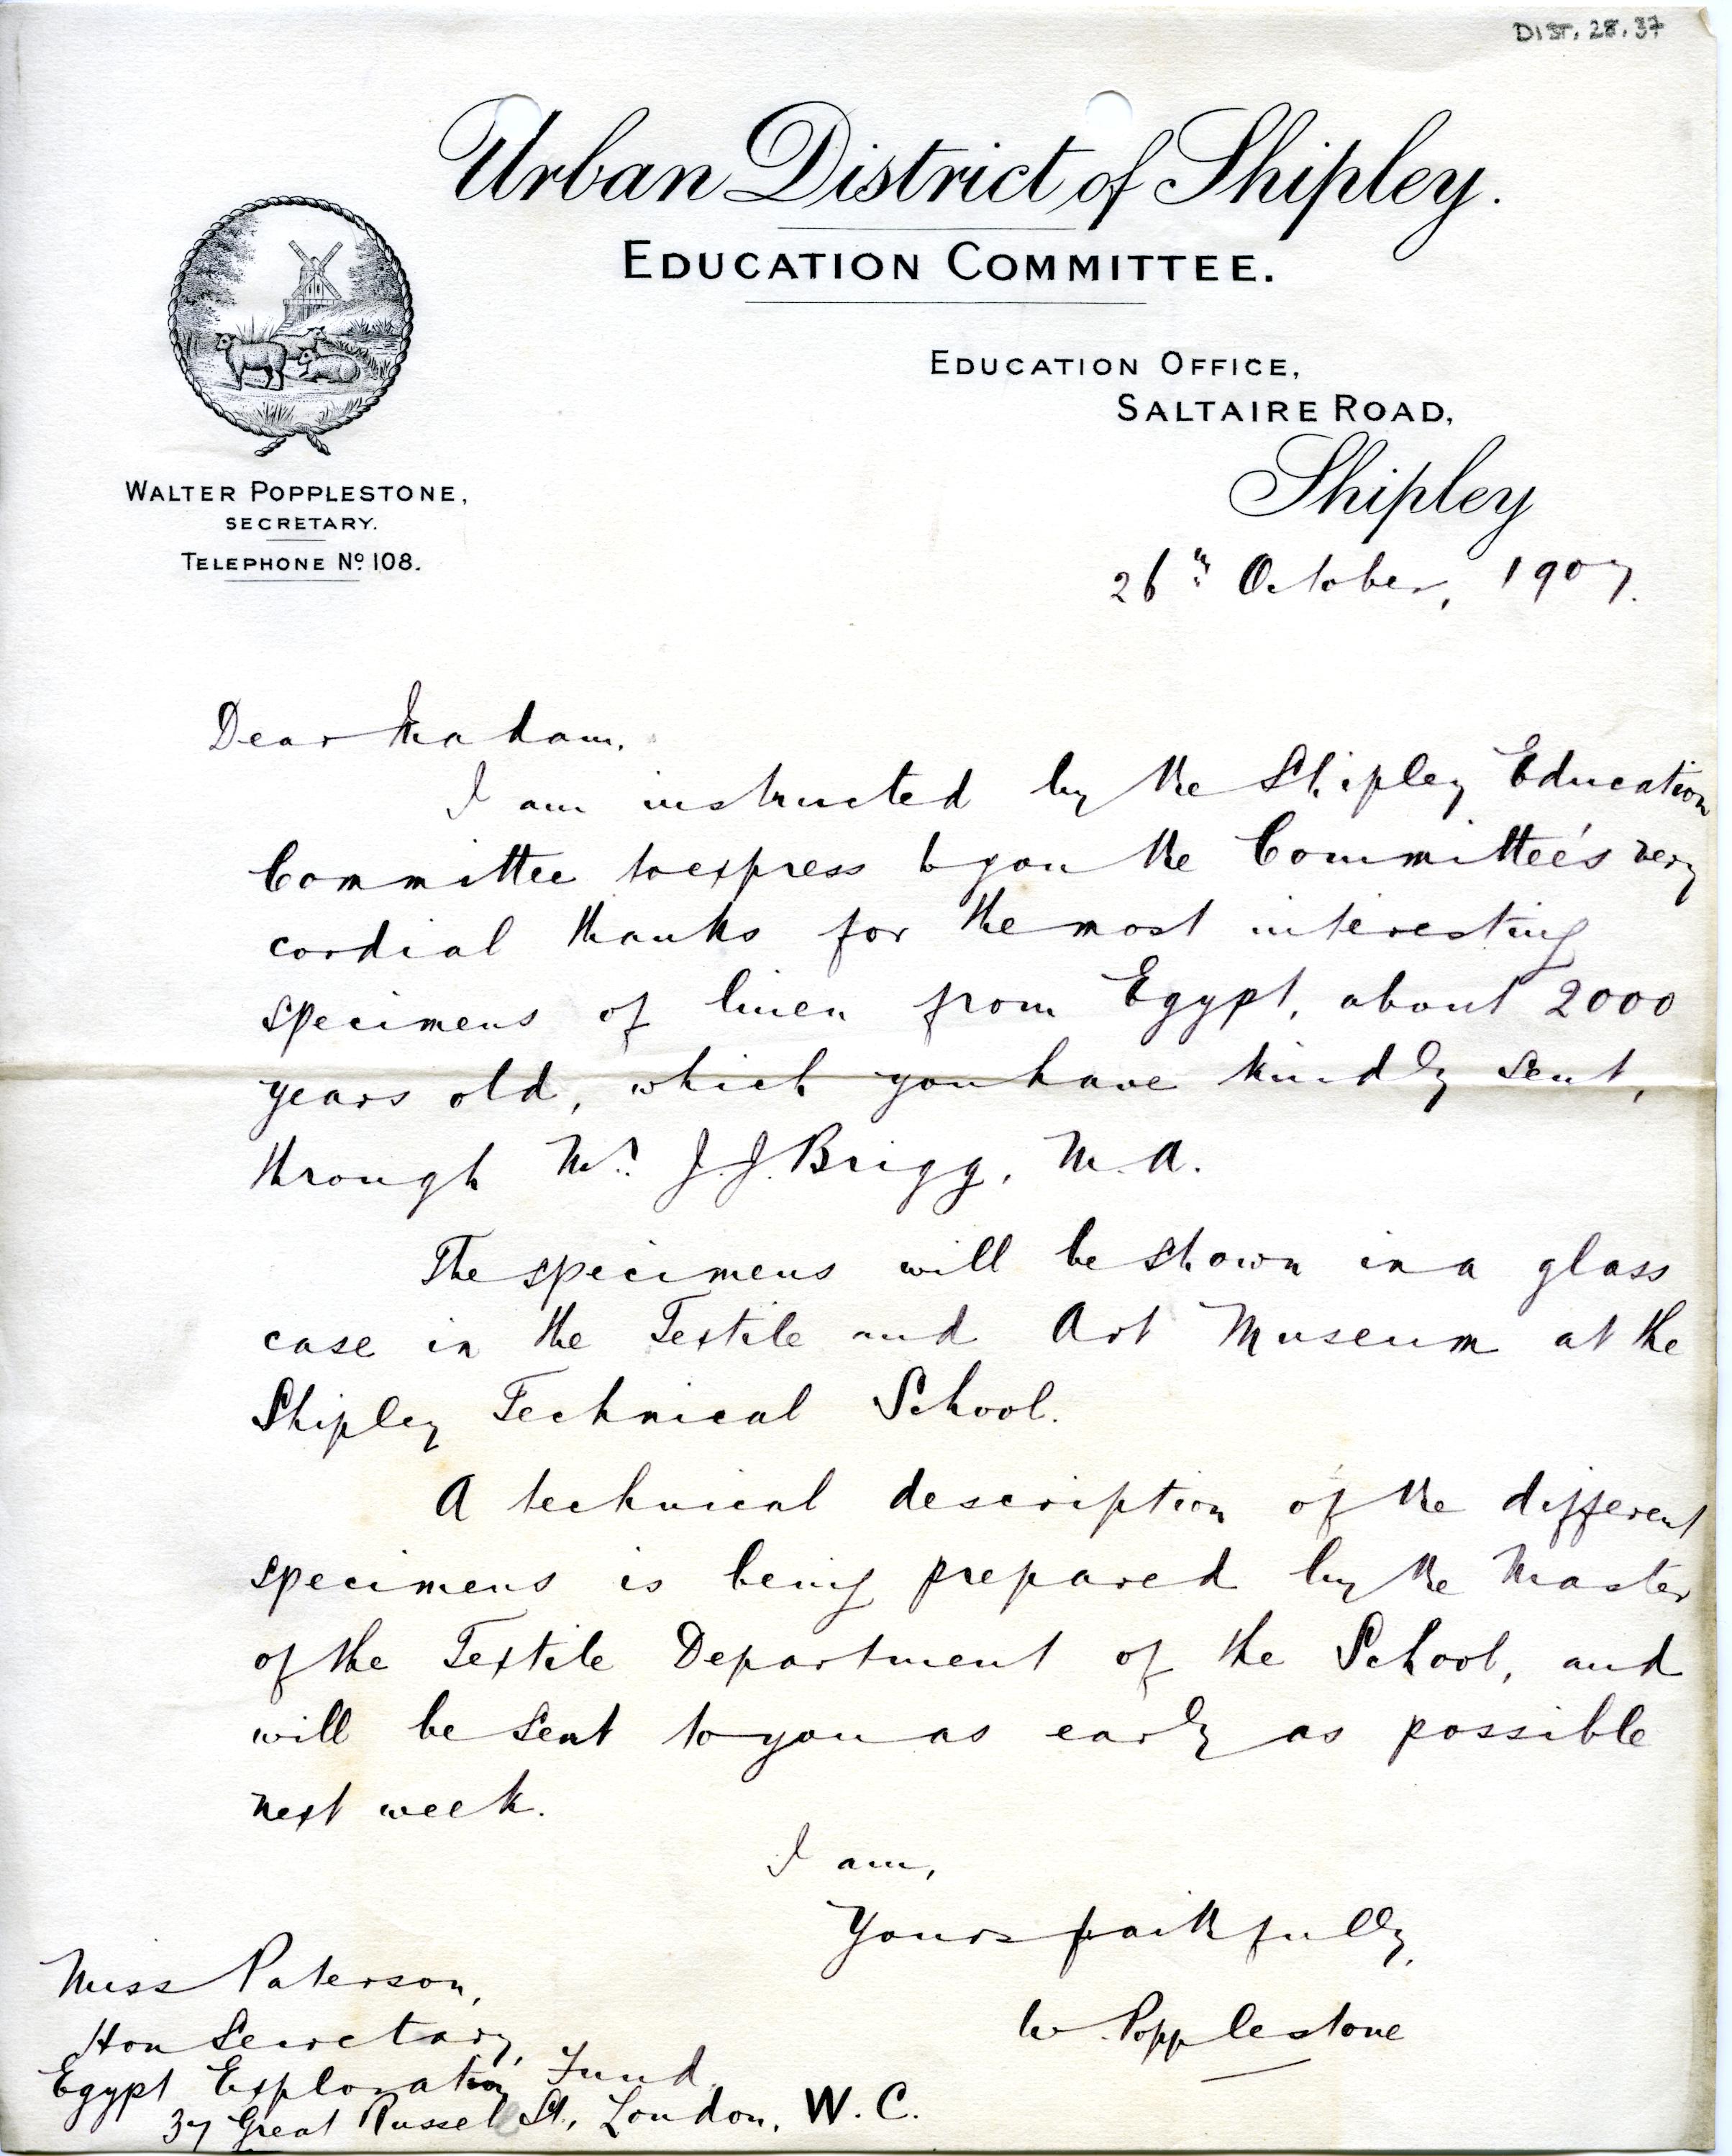 DIST. 28.37
Urban District of Shipley.
EDUCATION COMMITTEE.
EDUCATION OFFICE,
SALTAIRE ROAD,
Shipley
WALTER POPPLESTONE,
SECRETARY.
TELEPHONE No. 108.
26th October, 1907.
Dear Madam,
I am instructed by the Shipley Education
Committee to express to you the Committee's very
cordial thanks for the most interesting
specimens of linen from Egypt, about 2000
years old, which you have kindly sent,
through Mr. J. J. Brigg, M.A.
The specimens will be shown in a glass
case in the Textile and Art Museum at the
Shipley Technical School.
A technical description of the different
specimens is being prepared by the Master
of the Textile Department of the School, and
will be sent to you as early as possible
next week.
I am,
Yours faithfully,
W. Popplestone
Miss Paterson,
Hon Secretary,
Egypt Exploration Fund,
37 Great Russell St., London, W.C.